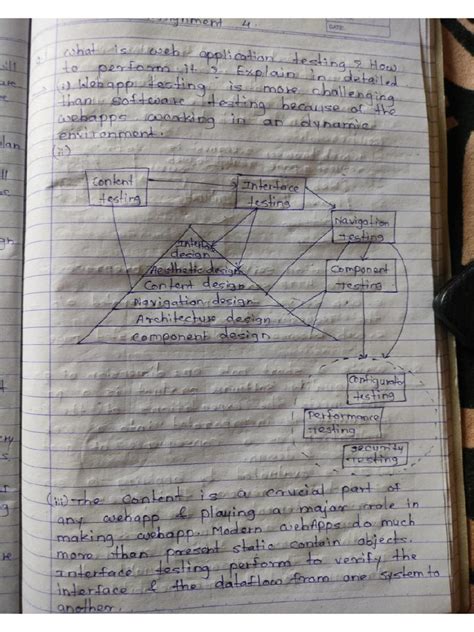 Assignment 4.
DATE:
Q.1 what is web application testing? How
to perform it ? Explain in detailed
(i) Webapp testing is more challenging
than software testing because of the
webapps working in an dynamic
environment.
(ii)
Content
testing
Interface
testing
Navigation
testing
Component
Testing
Interface
design
Aesthetic design
Content design
Navigation design
Architecture design
Component design
Configurator
testing
Performance
testing
Security
testing
(iii) The Content is a crucial part of
any webapp & playing a major role in
making webapp. Modern webApps do much
more than present static contain objects.
Interface testing perform to verify the
interface & the dataflow from one system to
another.